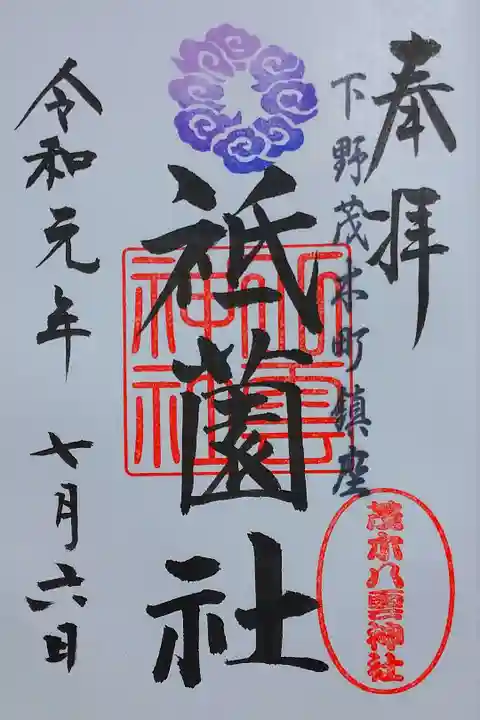 奉拝
下野茂木町鎮座
祗園社
八雲神社
茂木八雲神社
令和元年 七月六日